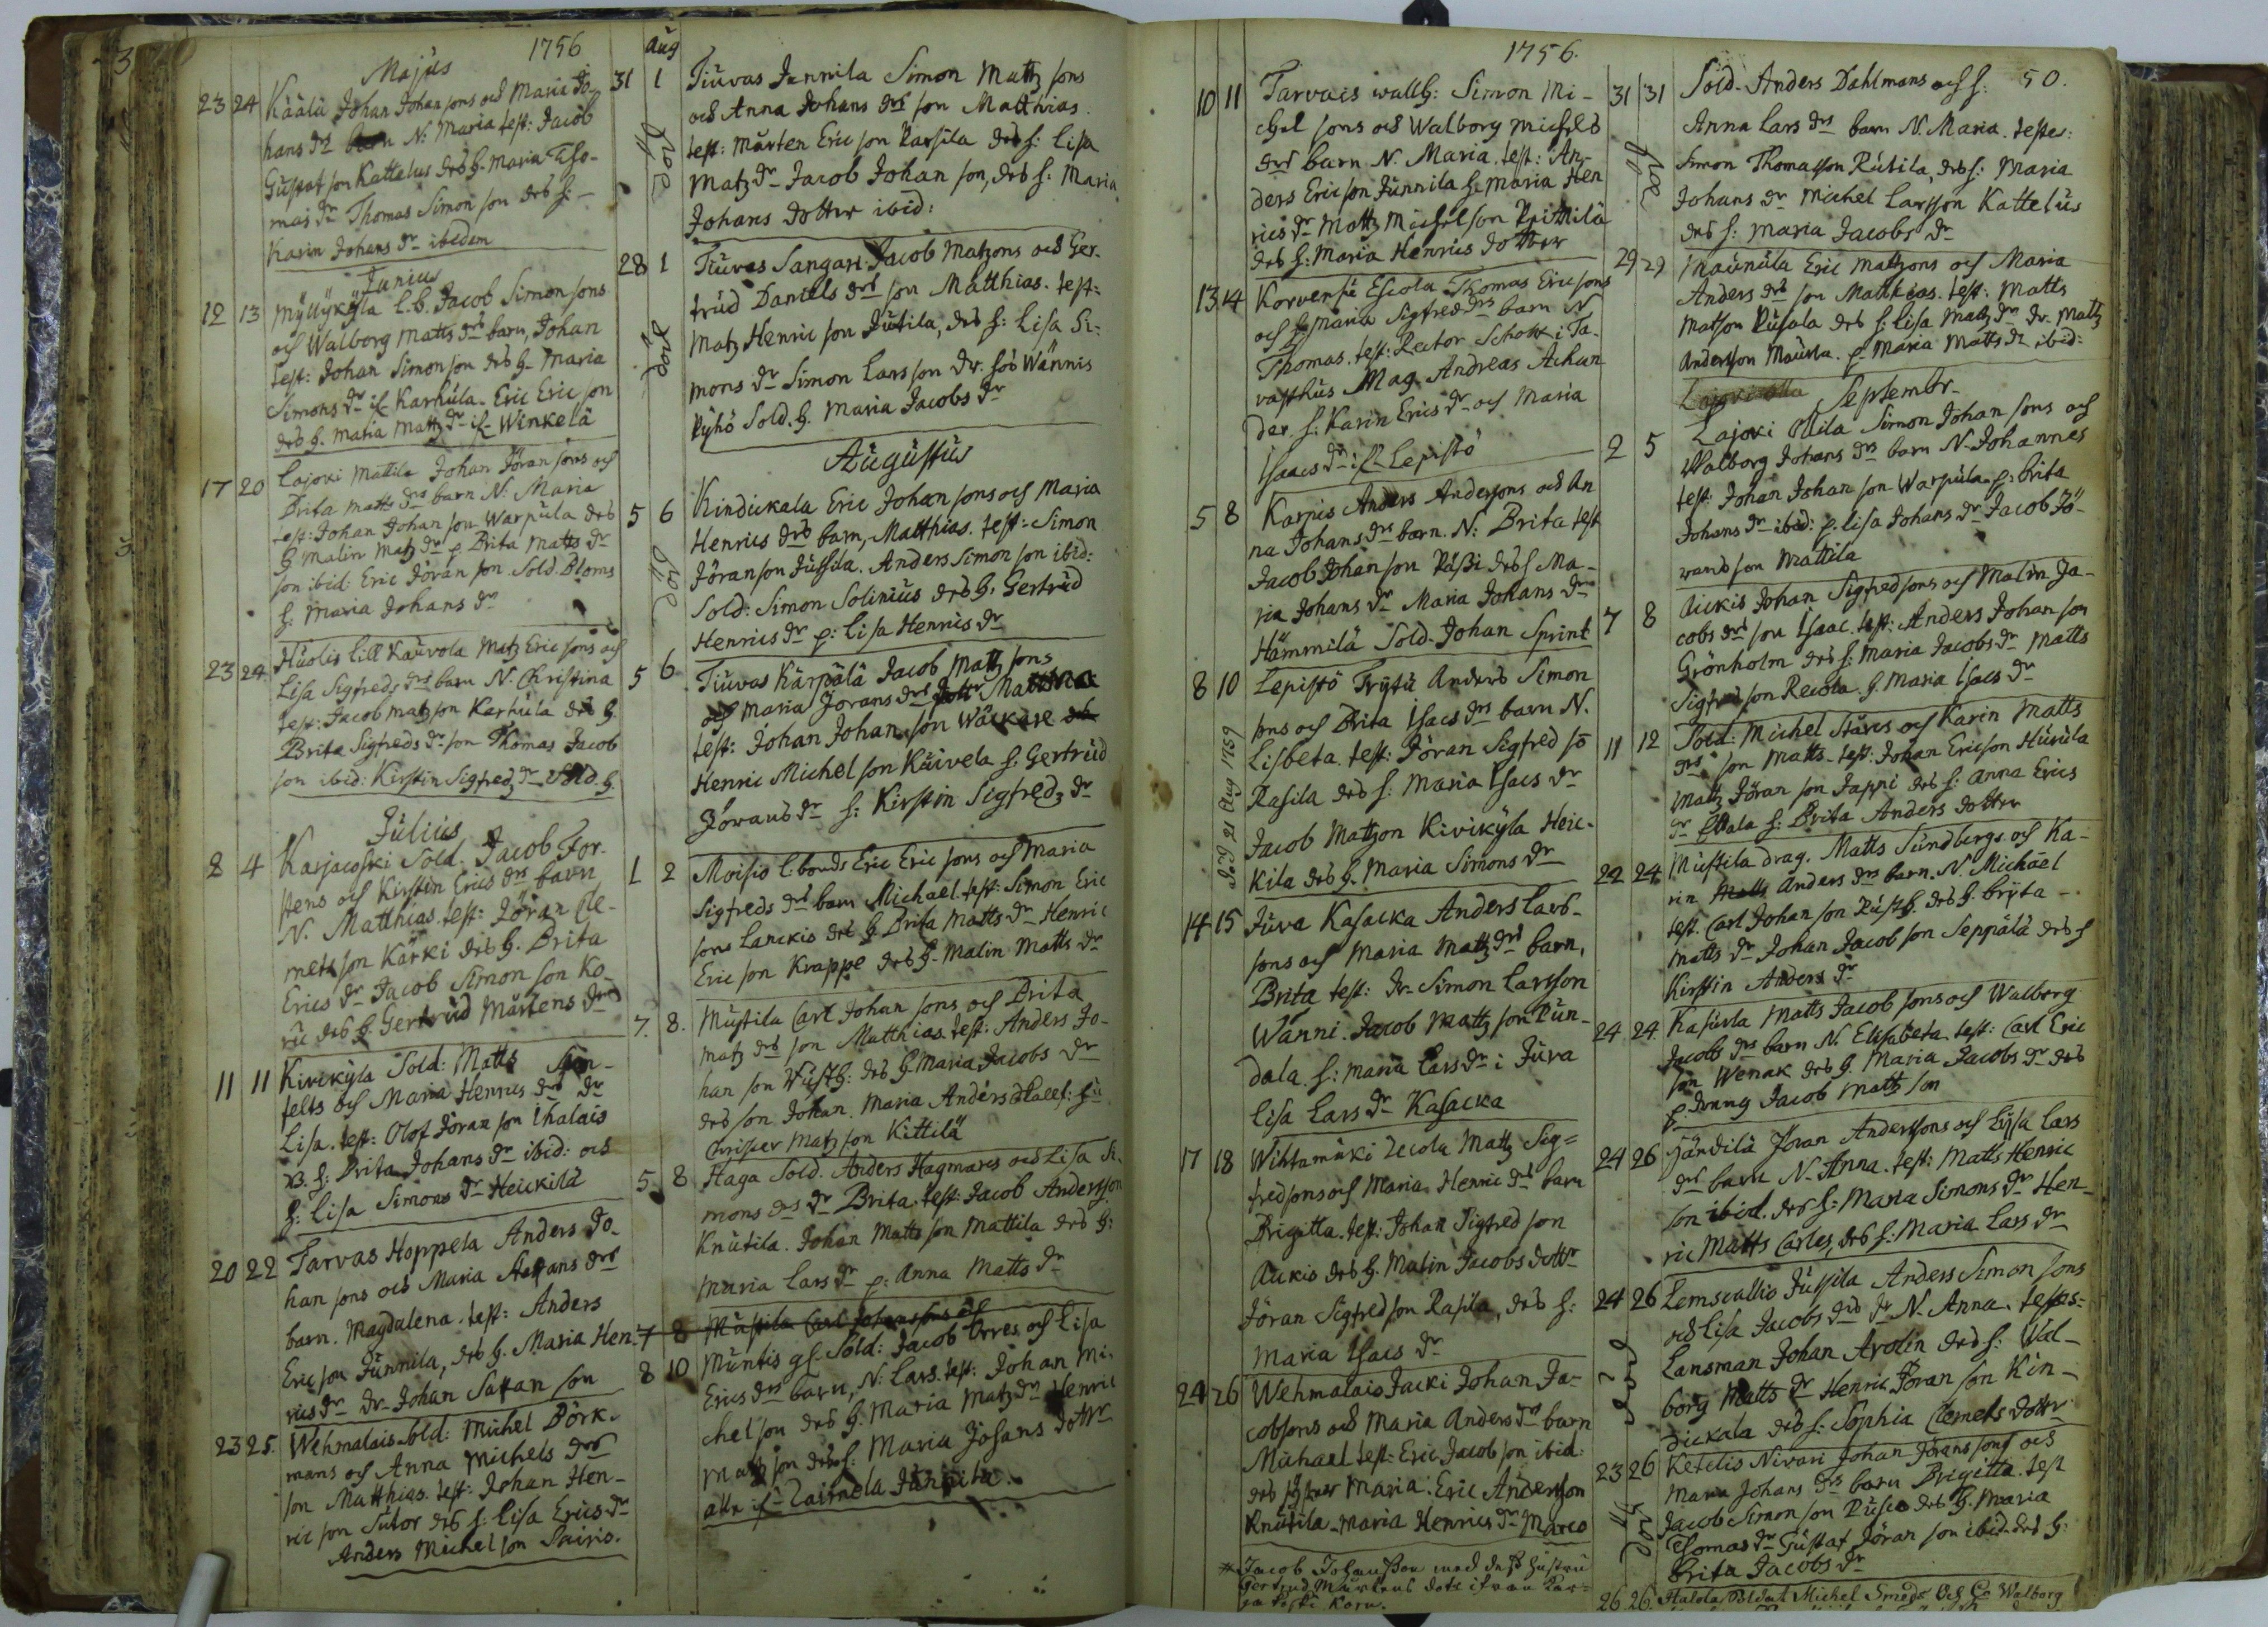 1756
Majus
23 24 Käälä Johan Johansons och Maria Jo-
hans dr barn N: Maria test: Jacob
Gustaf son Kattelus des h. Maria Tho-
mas dr Thomas Simon son des h:
Karin Johans dr ibidem
Junius
12 13 Myllykyla l.b. Jacob Simon sons
och Walborg Matts drs barn, Johan
test: Johan Simonson des h. Maria
Simons dr if. Karhula. Eric Eric son
des h. Maria Mattz dr if. Winkelä
17 20 Lajoki Mattila Johan Jöran sons och
Brita Matts drs barn N: Maria
test: Johan Johan son Warpula des
h. Malin Matz dr p Brita Matts dr
son ibid: Eric Jöran son Sold. Bloms
h: Maria Johans dr
23 24 Huolis Lill Kauvola Matz Eric sons och
Lisa Sigfreds drs barn N. Christina
test: Jacob Matz son Karhula des h.
Brita Sigfreds dr son Thomas Jacob
son ibid: Kirstin Sigfredz dr Sold. h.
Julius
2 4 Karjacoski Sold. Jacob Tor-
stens och Kirstin Erics drs barn
N. Matthias. test: Jöran Cle-
mets son Kärki des h. Brita
Erics dr Jacob Simon son Ko-
ru des h. Gertrud Mårtens dr
11 11 Kivikyla Sold: Matts
felts och Maria Henrics drs dr
Lisa. test: Olof Jöran son Ihalais
h: Brita Johans dr ibid: och
h: Lisa Simons dr Heickilä
20 22 Tarvas Hoppela Anders Jo-
han sons och Maria Staffans drs
barn. Magdalena. test: Anders
Eric son Junnila, des h. Maria Hen-
rics dr dr. Johan Staffan son
23 25. Wehmalais sold: Michel Börk-
mans och Anna Michels drs
son Matthias. test: Johan Hen-
ric son Sutor des h: Lisa Erics dr
Anders Michel son Pairis.
Aug
31 1 Tiuvas Jannila Simon Mattz sons
och Anna Johans drs son Matthias.
test: Mårten Eric son Rasila des h: Lisa
Matz dr Jacob Johan son, des h: Maria
Johans dotter ibid:
28 1 Tiuvas Sangari Jacob Matzons och Ger-
trud Daniels drs son Matthias. test:
Matz Henric son Jutila, des h: Lisa Si-
mons dr Simon Lars son dr. hos Wännis
Pyhö Sold. h. Maria Jacobs dr
Augustus
5 6 Kindickala Eric Johan sons och Maria
Henrics drs barn, Matthias. test: Simon
Jöranson Jussila. Anders Simon son ibid:
Sold: Simon Solinius des h. Gertrud
Henrics dr p: Lisa Henrics dr
5 6 Tiuvas Kärpälä Jacob Mattz sons
och Maria Jörans drs
test: Johan Johan son Wäckäre
Henric Michel son Käivela h. Gertrud
Jörans dr h: Kirstin Sigfredz dr
1 2 Moisio l. bonds Eric Eric sons och Maria
Sigfreds drs barn Michael. test: Simon Eric
sons Lanckis des h Brita Matts dr Henric
Eric son Krappe des h. Malin Matts dr
7. 8. Mustila Carl Johan sons och Brita
Matz drs son Matthias. test: Anders Jo-
han son Wusth: des h. Maria Jacobs dr
des son Johan. Maria Anders
Christer Matz son Kittilä
5 8 Haga Sold. Anders Hagmans och Lisa Si-
mons drs dr Brita. test: Jacob Andersson
Knutila. Johan Matts son Mattila des h:
Maria Lars dr p: Anna Matts dr
7 8 Mustila Carl Johansons och
8 10 Muntis gf. Sold: Jacob Orres och Lisa
Erics drs barn, N: Lars. test: Johan Mi-
chel son des h. Maria Matz dr Henric
Matz son des h: Maria Johans dotter
alle if
1756.
10 11 Tarvais wallb: Simon Mi-
chel sons och Walborg Michels
drs barn N. Maria. test: An-
ders Eric son Junnila h. Maria Hen
rics dr Mattz Michelson Prittilä
des h: Maria Henrics dotter
13 14 Korvensu Escola Thomas Ericsons
och h Maria Sigfreds drs barn N
Thomas. test: Rector Schott i Ta-
vasthus Mag. Andreas Achan
der. h. Karin Erics dr och Maria
Isaacs dr if Lepistö
5 8 Karpis Anders Andersons och An
na Johans drs barn. N: Brita test
Jacob Johan son Passi des h Ma-
ria Johans dr Maria Johans dr
Hämmilä Sold. Johan Sprint
8 10 Lepistö Frytu Anders Simon
sons och Brita Isacs drs barn N.
Lisbeta. test: Jöran Sigfred so
Rasila des h: Maria Isacs dr
Jacob Mattzon Kivikyla Heic-
kila des h. Maria Simons dr
död 21 Aug 1759
14 15 Juva Kasacka Anders Lars-
sons och Maria Mattz drs barn,
Brita test: dr. Simon Larsson
Wanni. Jacob Mattz son Pun-
dala. h: Maria Lars dr i Juva
Lisa Lars dr Kasacka
17 18 Wihtamäki Uecola Mattz Sig-
fredsons och Maria Henric drs barn
Brigitta. test: Johan Sigfred son
Aukis des h. Malin Jacobs dottr
Jöran Sigfredson Rasila, des h:
Maria Isacs dr
24 26 Wehmalais Jacki Johan Ja-
cobsons och Maria Anders drs barn
Michael test: Eric Jacob son ibid:
des syster Maria. Eric Andersson
Knutila. Maria Henrics dr Marco
* Jacob Johansson med dess hustru
Gertrud Mårtens dottr ifrån Kar-
ja koski Koru.
50.
31 31 Sold. Anders Dahlmans och h:
Anna Lars drs barn N. Maria. testes:
Simon Thomasson Rutila, des h: Maria
Johans dr Michel Larsson Kattelus
des h: Maria Jacobs dr
29 29 Maunula Eric Mattzons och Maria
Anders drs son Matthias. test: Matts
Matson Pusala des h: Lisa Matz dr dr. Mattz
Andersson Maunula. p. Maria Matts dr ibid:
Septembr.
2 5 Lajoki Ollila Simon Johan sons och
Walborg Johans drs barn N. Johannes
test: Johan Johan son Warpula. p: Brita
Johans dr ibid: p. Lisa Johans dr Jacob Jö-
rans son Mattila
7 8 Aickis Johan Sigfredsons och Malin Ja-
cobs drs son Isaac. test: Anders Johan son
Grönholm des h: Maria Jacobs dr Matts
Sigfred son Recola. h. Maria Isacs dr
11 12 Sold: Michel Stares och Karin Matts
drs son Matts. test: Johan Ericson Hurula
Mattz Jöran son Jappi des h: Anna Erics
dr h: Brita Anders dotter
22 24 Mustila drag. Matts Sundbergs och Ka-
rin Anders drs barn. N. Michael
test. Carl Johan son Rusth. des h. Bryta
Matts dr Johan Jacob son Seppälä des h
Kirstin Anders dr
24 24. Kasurla Matts Jacob sons och Walborg
Jacobs drs barn N. Elisabeta. test: Carl Eric
son Wenak des h. Maria Jacobs dr des
p. dräng Jacob Mattz son
24 26 Jändilä Jöran Anderssons och Lissa Lars
drs barn N. Anna. test: Matts Henric
son ibid. des h: Maria Simons dr Hen-
ric Matts Carles, des h: Maria Lars dr
24 26 Lemscallio Jussila Anders Simon sons
och Lisa Jacobs drs dr N. Anna. testes:
Lansman Johan Arolin des h: Wal-
borg Matts dr Henric Jöran son Kin-
dickala des h: Sophia Clemets dotter
23 26 Ketelis Nivari Johan Jörans sons och
Maria Johans drs barn Brigitta. test
Jacob Simon son Pusco des h. Maria
Thomas dr Gustaf Jöran son ibid. des h:
Brita Jacobs dr
26 26. Halola Soldat Michel Smeds och h Walborg